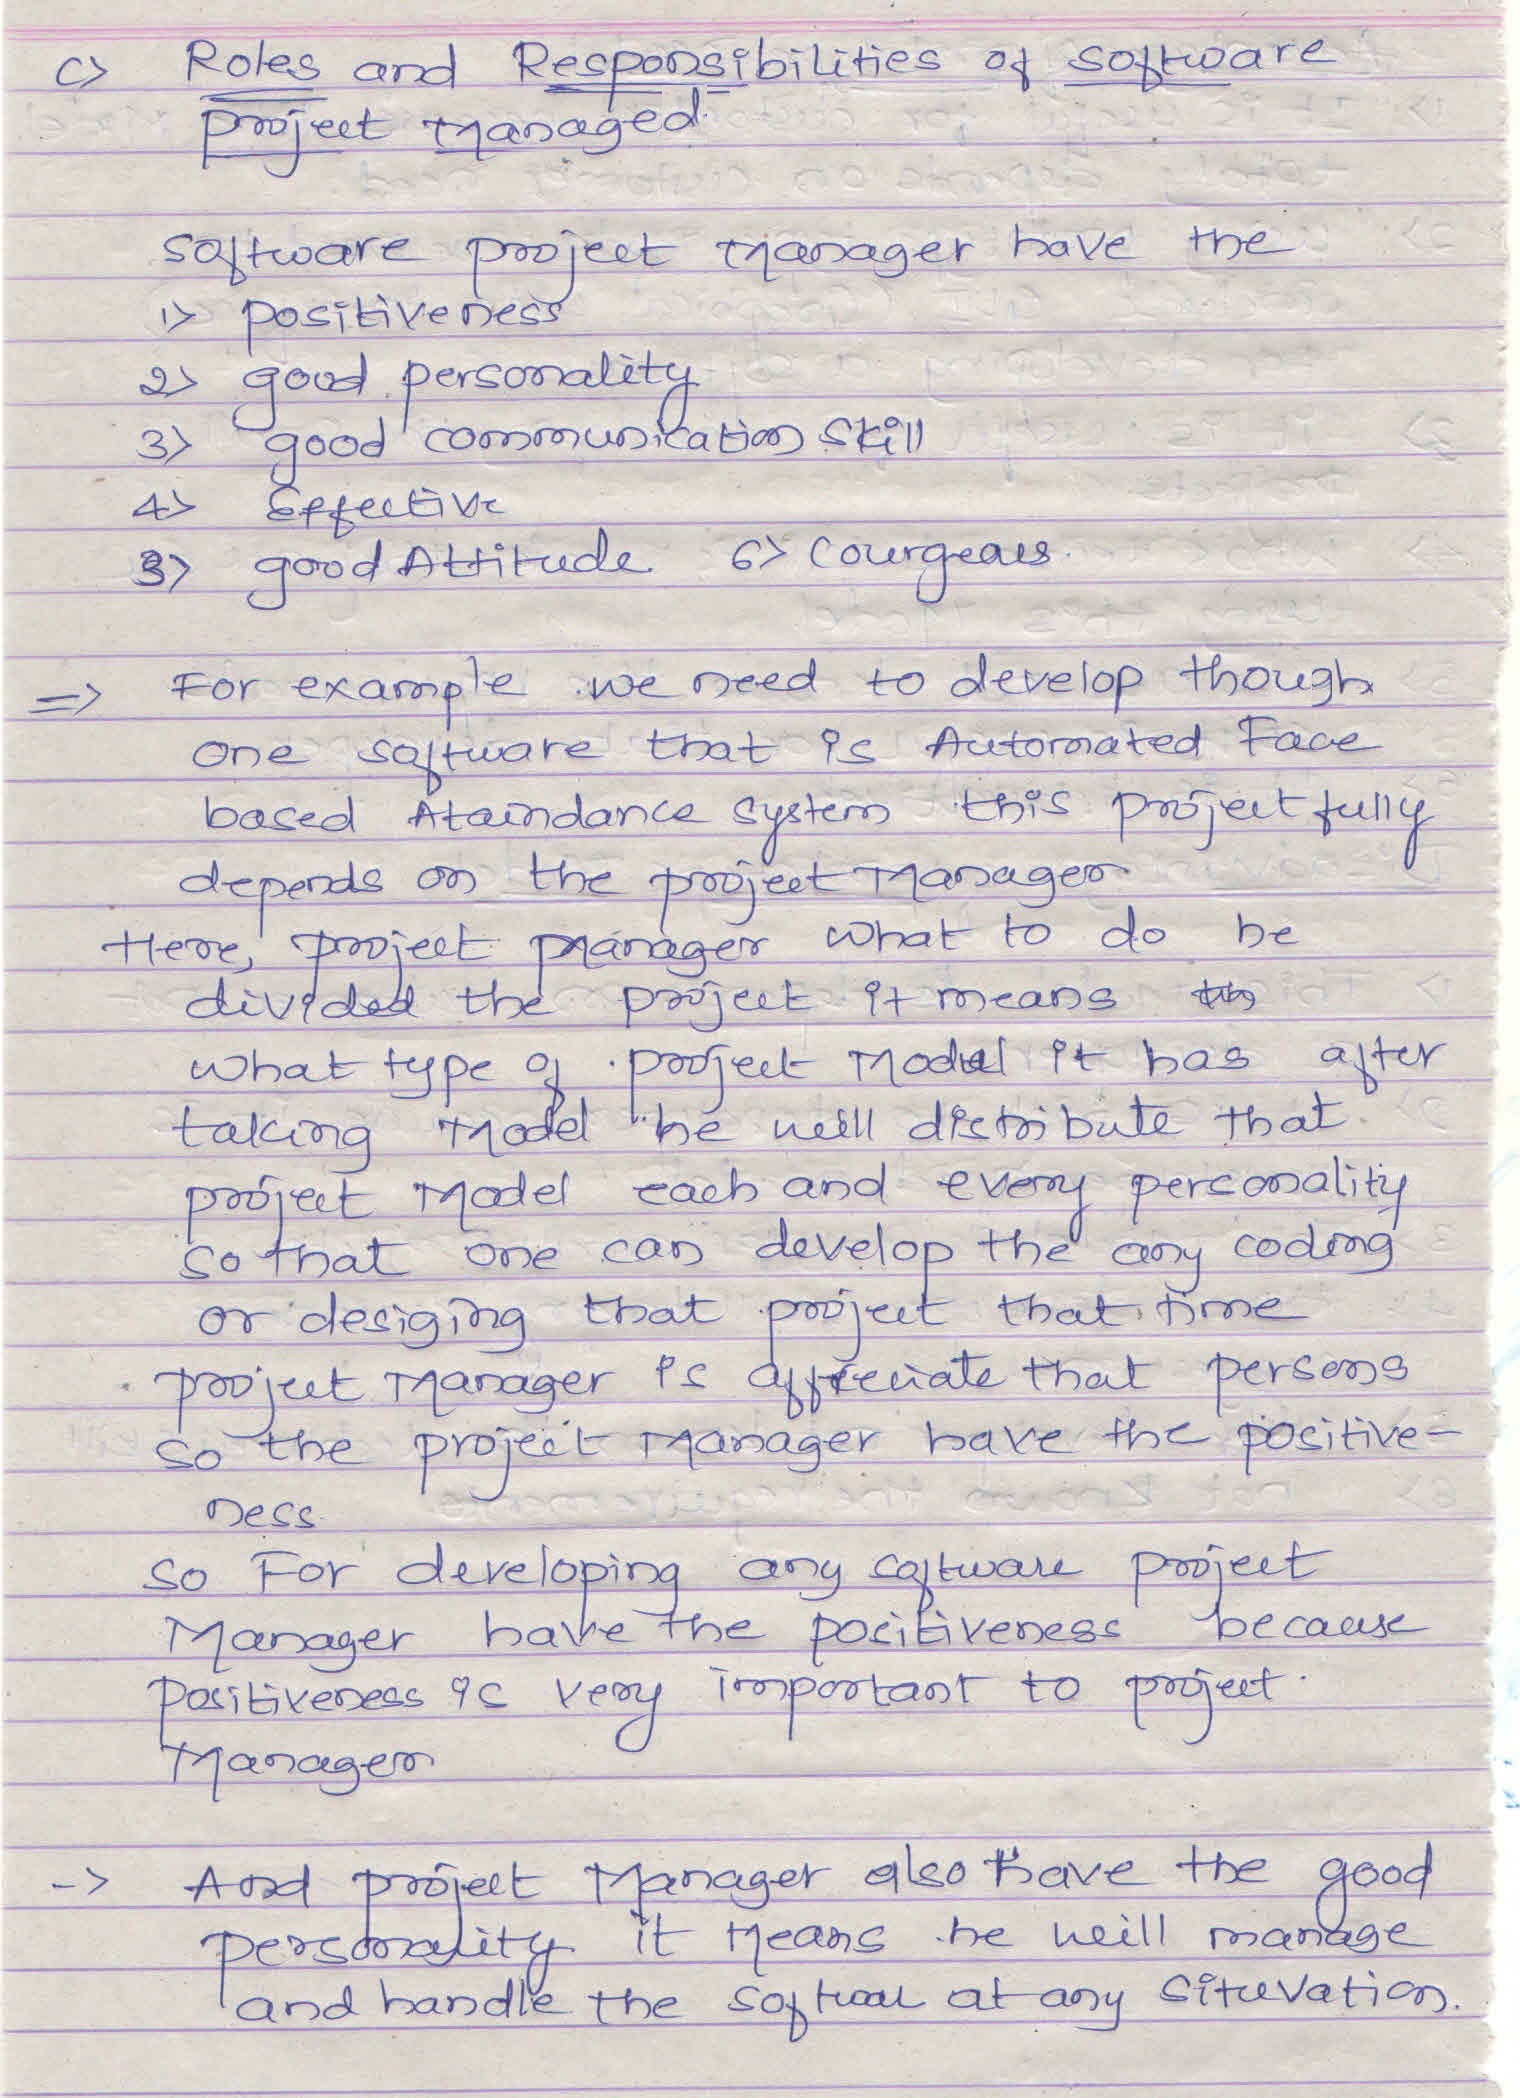 c> Roles and Responsibilities of software
project Managed.
software project Manager have the
1> positiveness
2> good personality
3> good communication skill
4> Effective
5> good Attitude 6> Courgeaus.
=> For example we need to develop though
one software that is Automated Face
based Ataindance system this project fully
depends on the project Manager
Here, project Manager what to do he
divided the project it means
what type of project Model it has after
taking Model he will distribute that
project Model each and every personality
so that one can develop the any coding
or desiging that project that time
project Manager is appreciate that persons
so the project Manager have the positive-
ness.
so For developing any software project
Manager have the positiveness because
positiveness is very important to project.
Manager
-> And project Manager also have the good
personality it Means he will manage
and handle the softwar at any situvation.